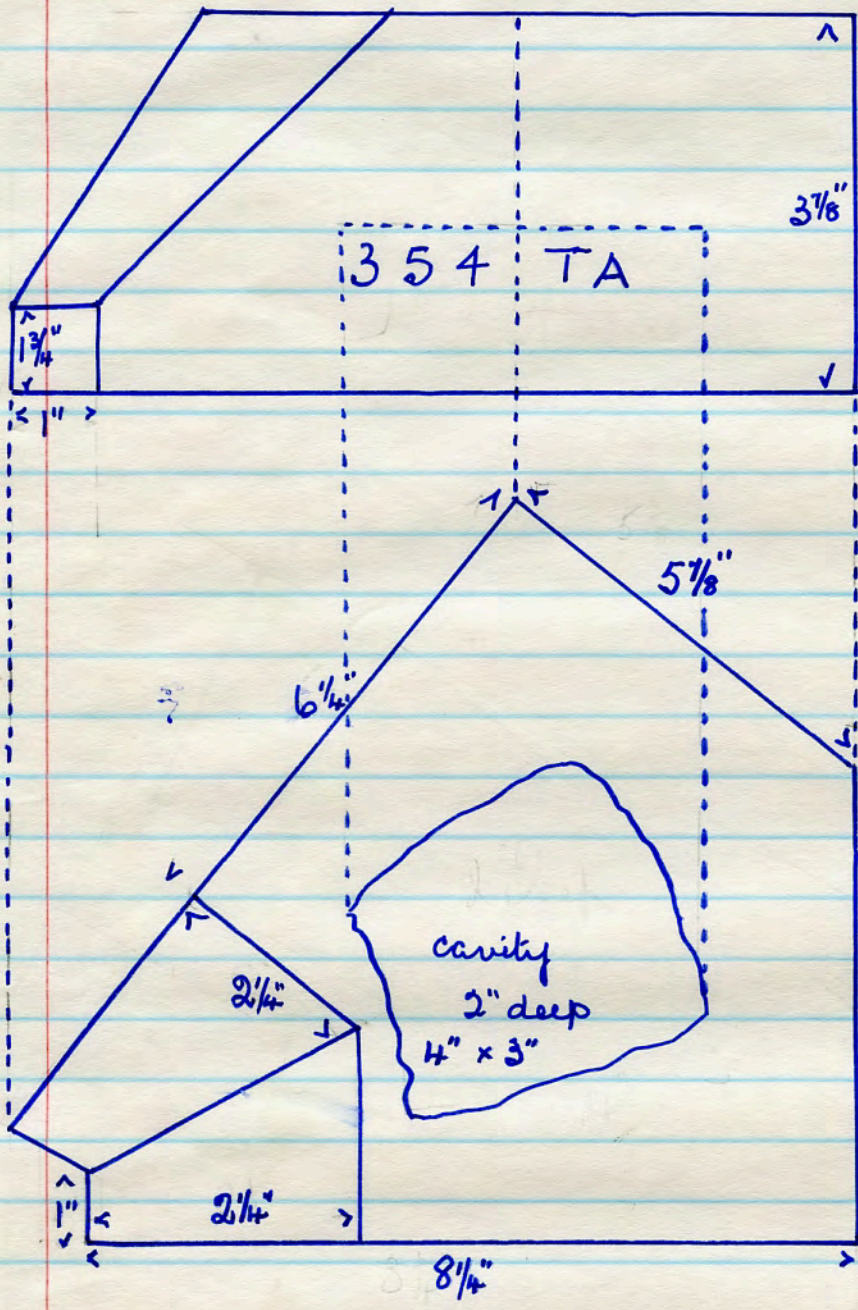 3 7/8"
354 TA
1 3/4"
1"
5 7/8"
6 1/4"
cavity
2" deep
4" x 3"
2 1/4"
1"
2 1/4"
8 1/4"